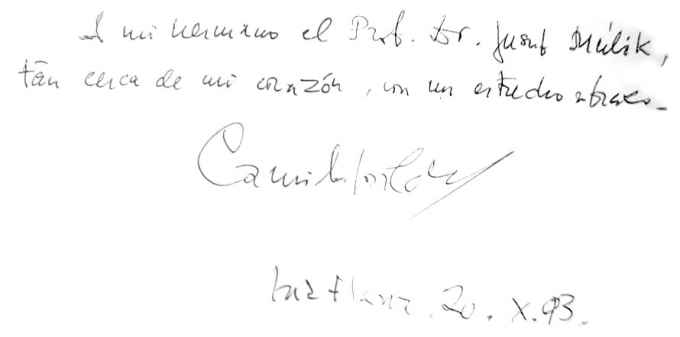 A mi hermano el Prof. Dr. Jusuf Mulik,
tan cerca de mi corazón, con un estrecho abrazo.
Camilo
20. X. 93.